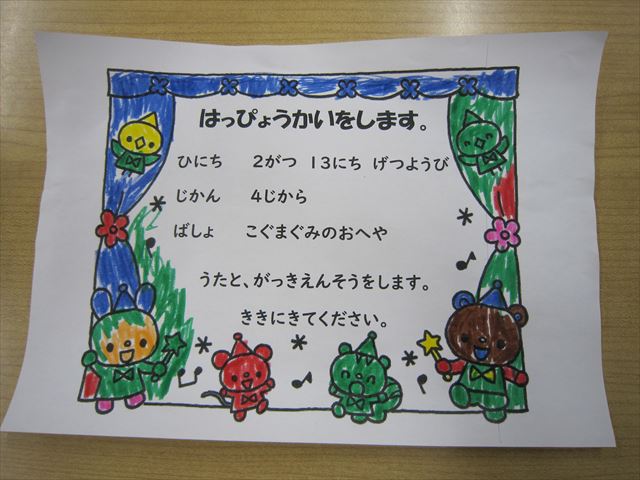 はっぴょうかいをします。
ひにち　2がつ　13にち　げつようび
じかん　4じから
ばしょ　こぐまぐみのおへや
うたと、がっきえんそうをします。
ききにきてください。